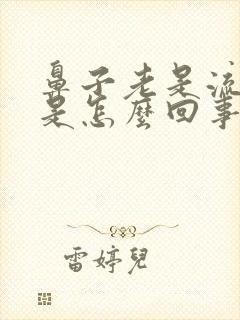 鼻子老是流
是怎麼回事
雷婷兒